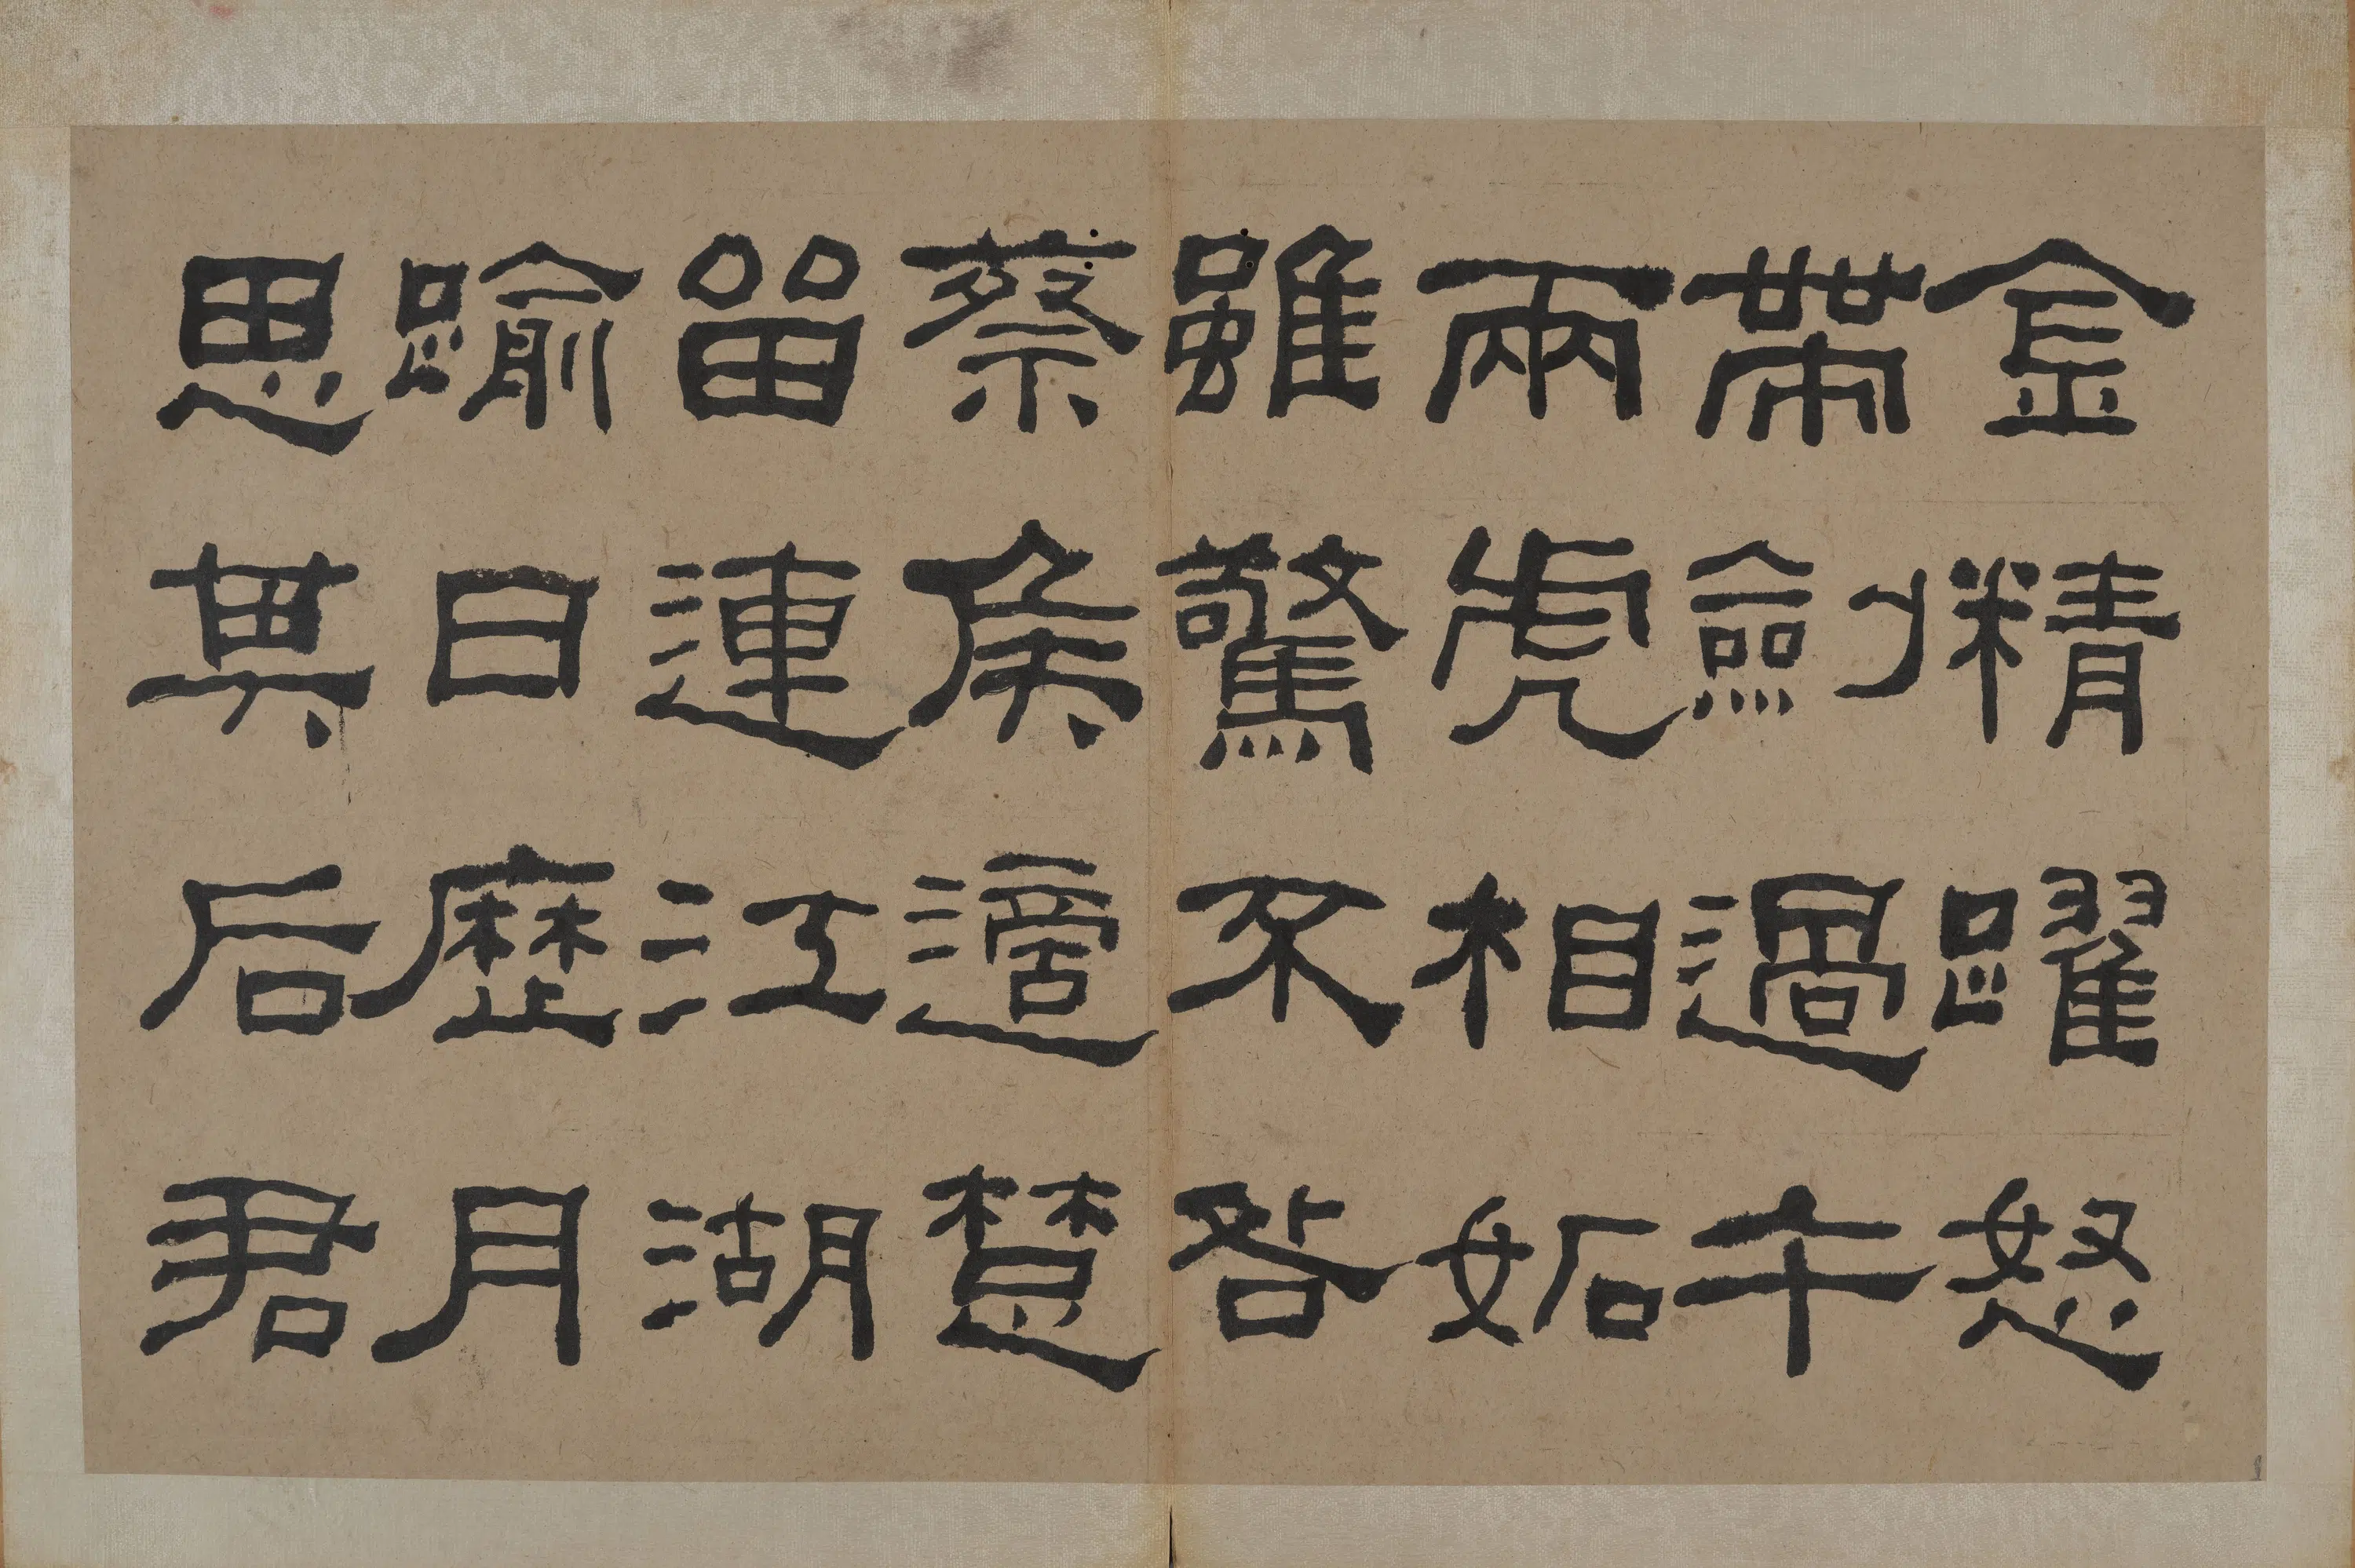 金精躍怒
帶劍過午
兩虎相妬
雖驚不咎
蔡侯適楚
留連江湖
踰日歷月
思其后君